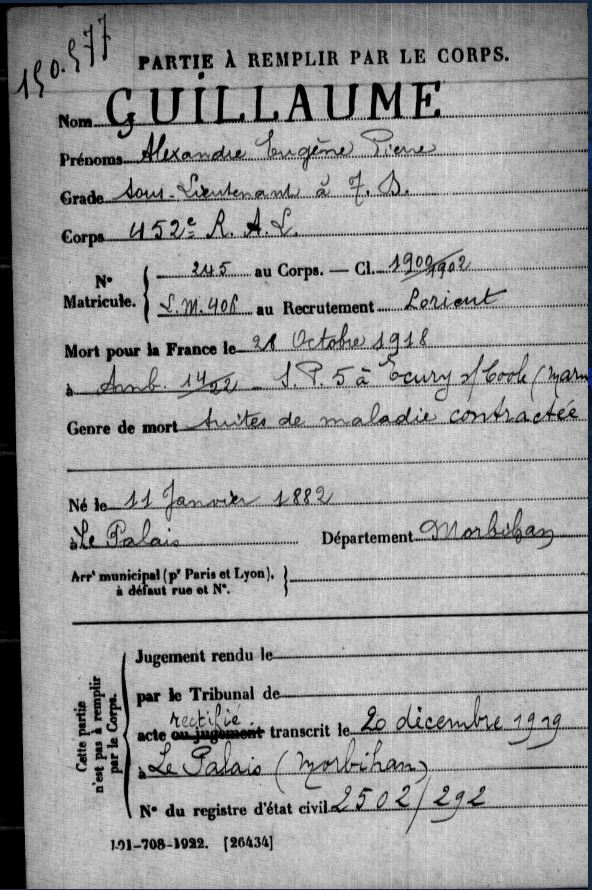 150.577
PARTIE À REMPLIR PAR LE CORPS.
Nom GUILLAUME
Prénoms Alexandre Eugène Pierre
Grade Sous-Lieutenant à T. D.
Corps 452e R. A. L.
N° Matricule. { 245 au Corps. — Cl. 1900/1902
S.M. 408 au Recrutement Lorient
Mort pour la France le 28 Octobre 1918
à Amb. 14/22 - S. P. 5 à Écury s/ Coole (Marn
Genre de mort Suites de maladie contractée
Né le 11 Janvier 1882
à Le Palais Département Morbihan
Arrt municipal (pr Paris et Lyon), }
à défaut rue et N°.
Cette partie n'est pas à remplir par le Corps.
Jugement rendu le
par le Tribunal de
rectifié.
acte ou jugement transcrit le 20 décembre 1919
à Le Palais (Morbihan)
N° du registre d'état civil 2502/292
101-708-1922. [26434]